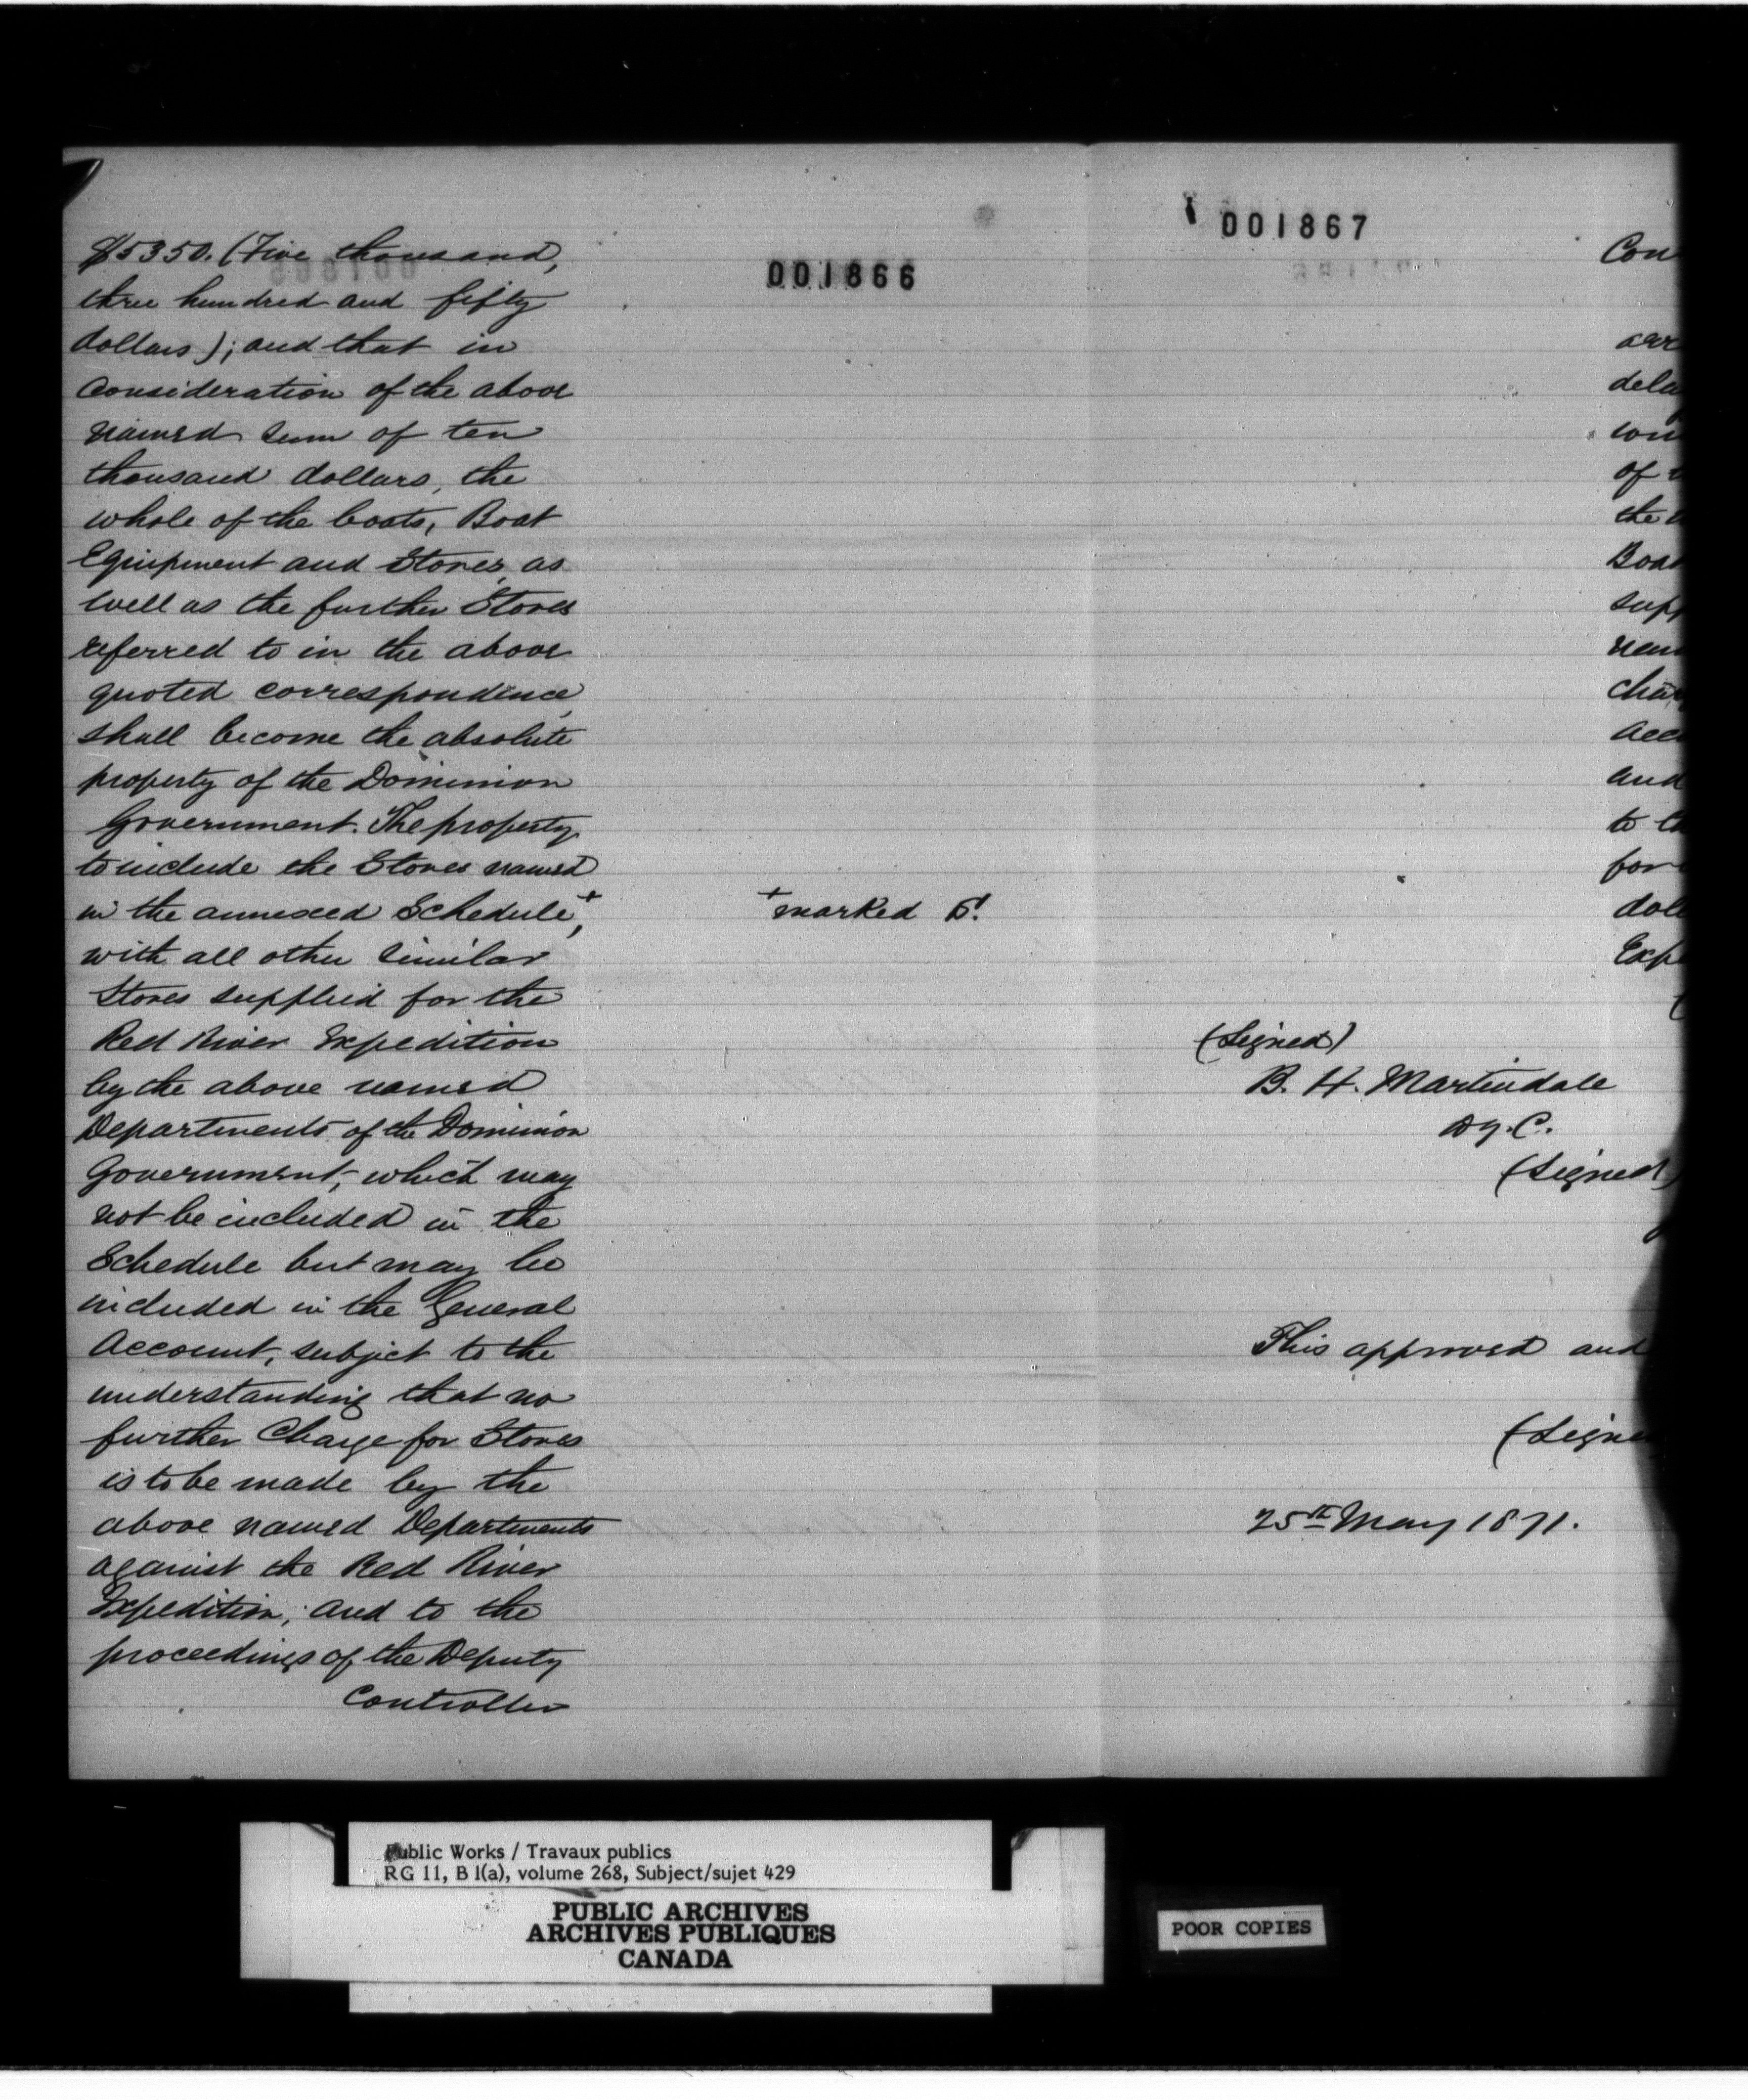 001866
$5350. (Five thousand,
three hundred and fifty
dollars); and that in
consideration of the above
named sum of ten
thousand dollars, the
whole of the boats, Boat
Equipment and Stores, as
well as the further Stores
referred to in the above
quoted correspondence,
shall become the absolute
property of the Dominion
Government. The property
to include the Stores named
in the annexed Schedule,+
with all other similar
Stores supplied for the
Red River Expedition
by the above named
Departments of the Dominion
Government, which may
not be included in the
Schedule but may be
included in the General
Account, subject to the
understanding that no
further Charge for Stores
is to be made by the
above named Departments
against the Red River
Expedition; and to the
proceedings of the Deputy
Controller
+marked
001867
Con
arr
dela
of
the
Boat
supp
nam
cha
acc
and
to th
for
doll
Exp
(Signed)
B. H. Martindale
Dy. C.
(Signed)
This approved and
(Signe
25th May 1871.
Public Works / Travaux publics
RG 11, B 1(a), volume 268, Subject/sujet 429
PUBLIC ARCHIVES
ARCHIVES PUBLIQUES
CANADA
POOR COPIES